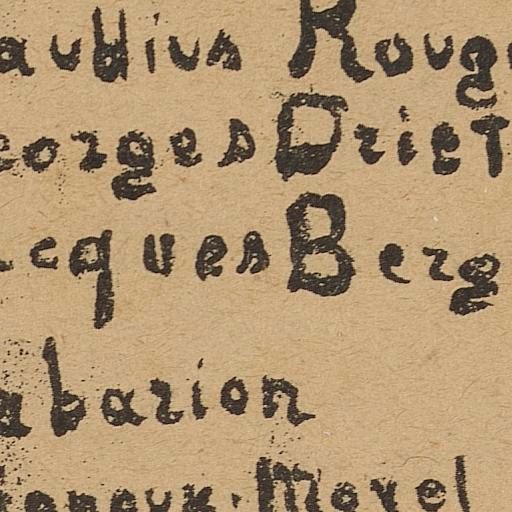 audius Roug
eorges Driet
cques Berg
abarion
Morel